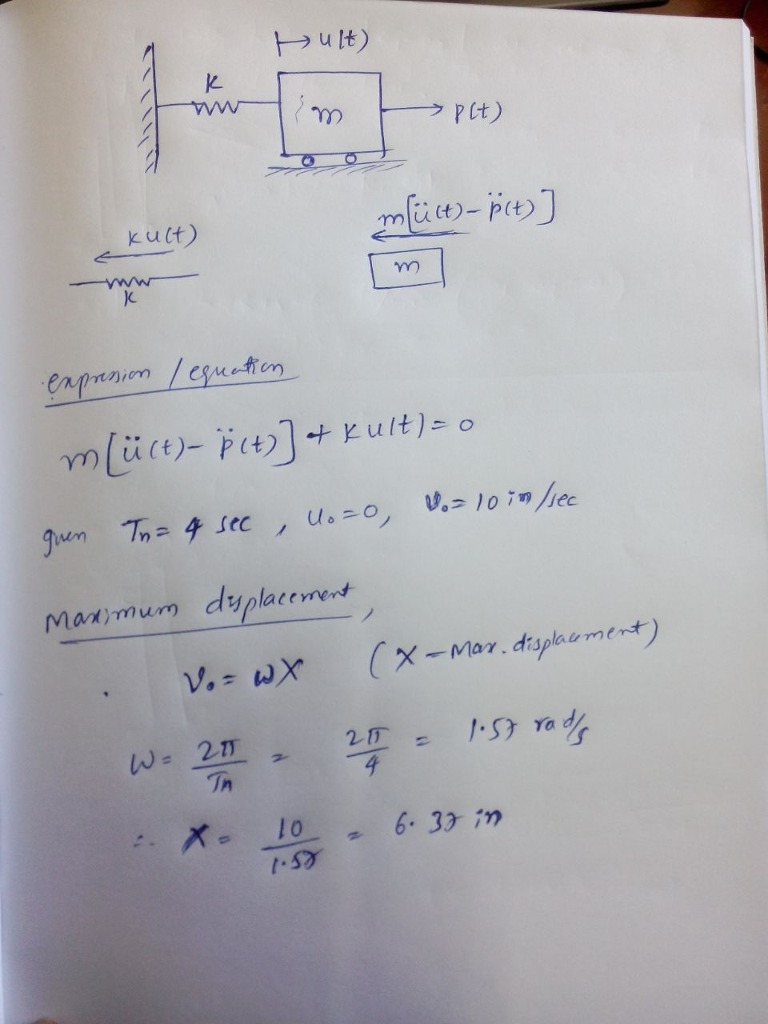 u(t)
K
m
p(t)
m[ü(t)- p̈(t)]
ku(t)
m
K
expression / equation
m[ü(t)- p̈(t)] + ku(t) = 0
given Tn = 4 sec , u₀=0, v₀= 10 in/sec
Maximum displacement,
v₀ = ωX (X - Max. displacement)
ω = 2π/Tn = 2π/4 = 1.57 rad/s
∴ X = 10/1.57 = 6.37 in